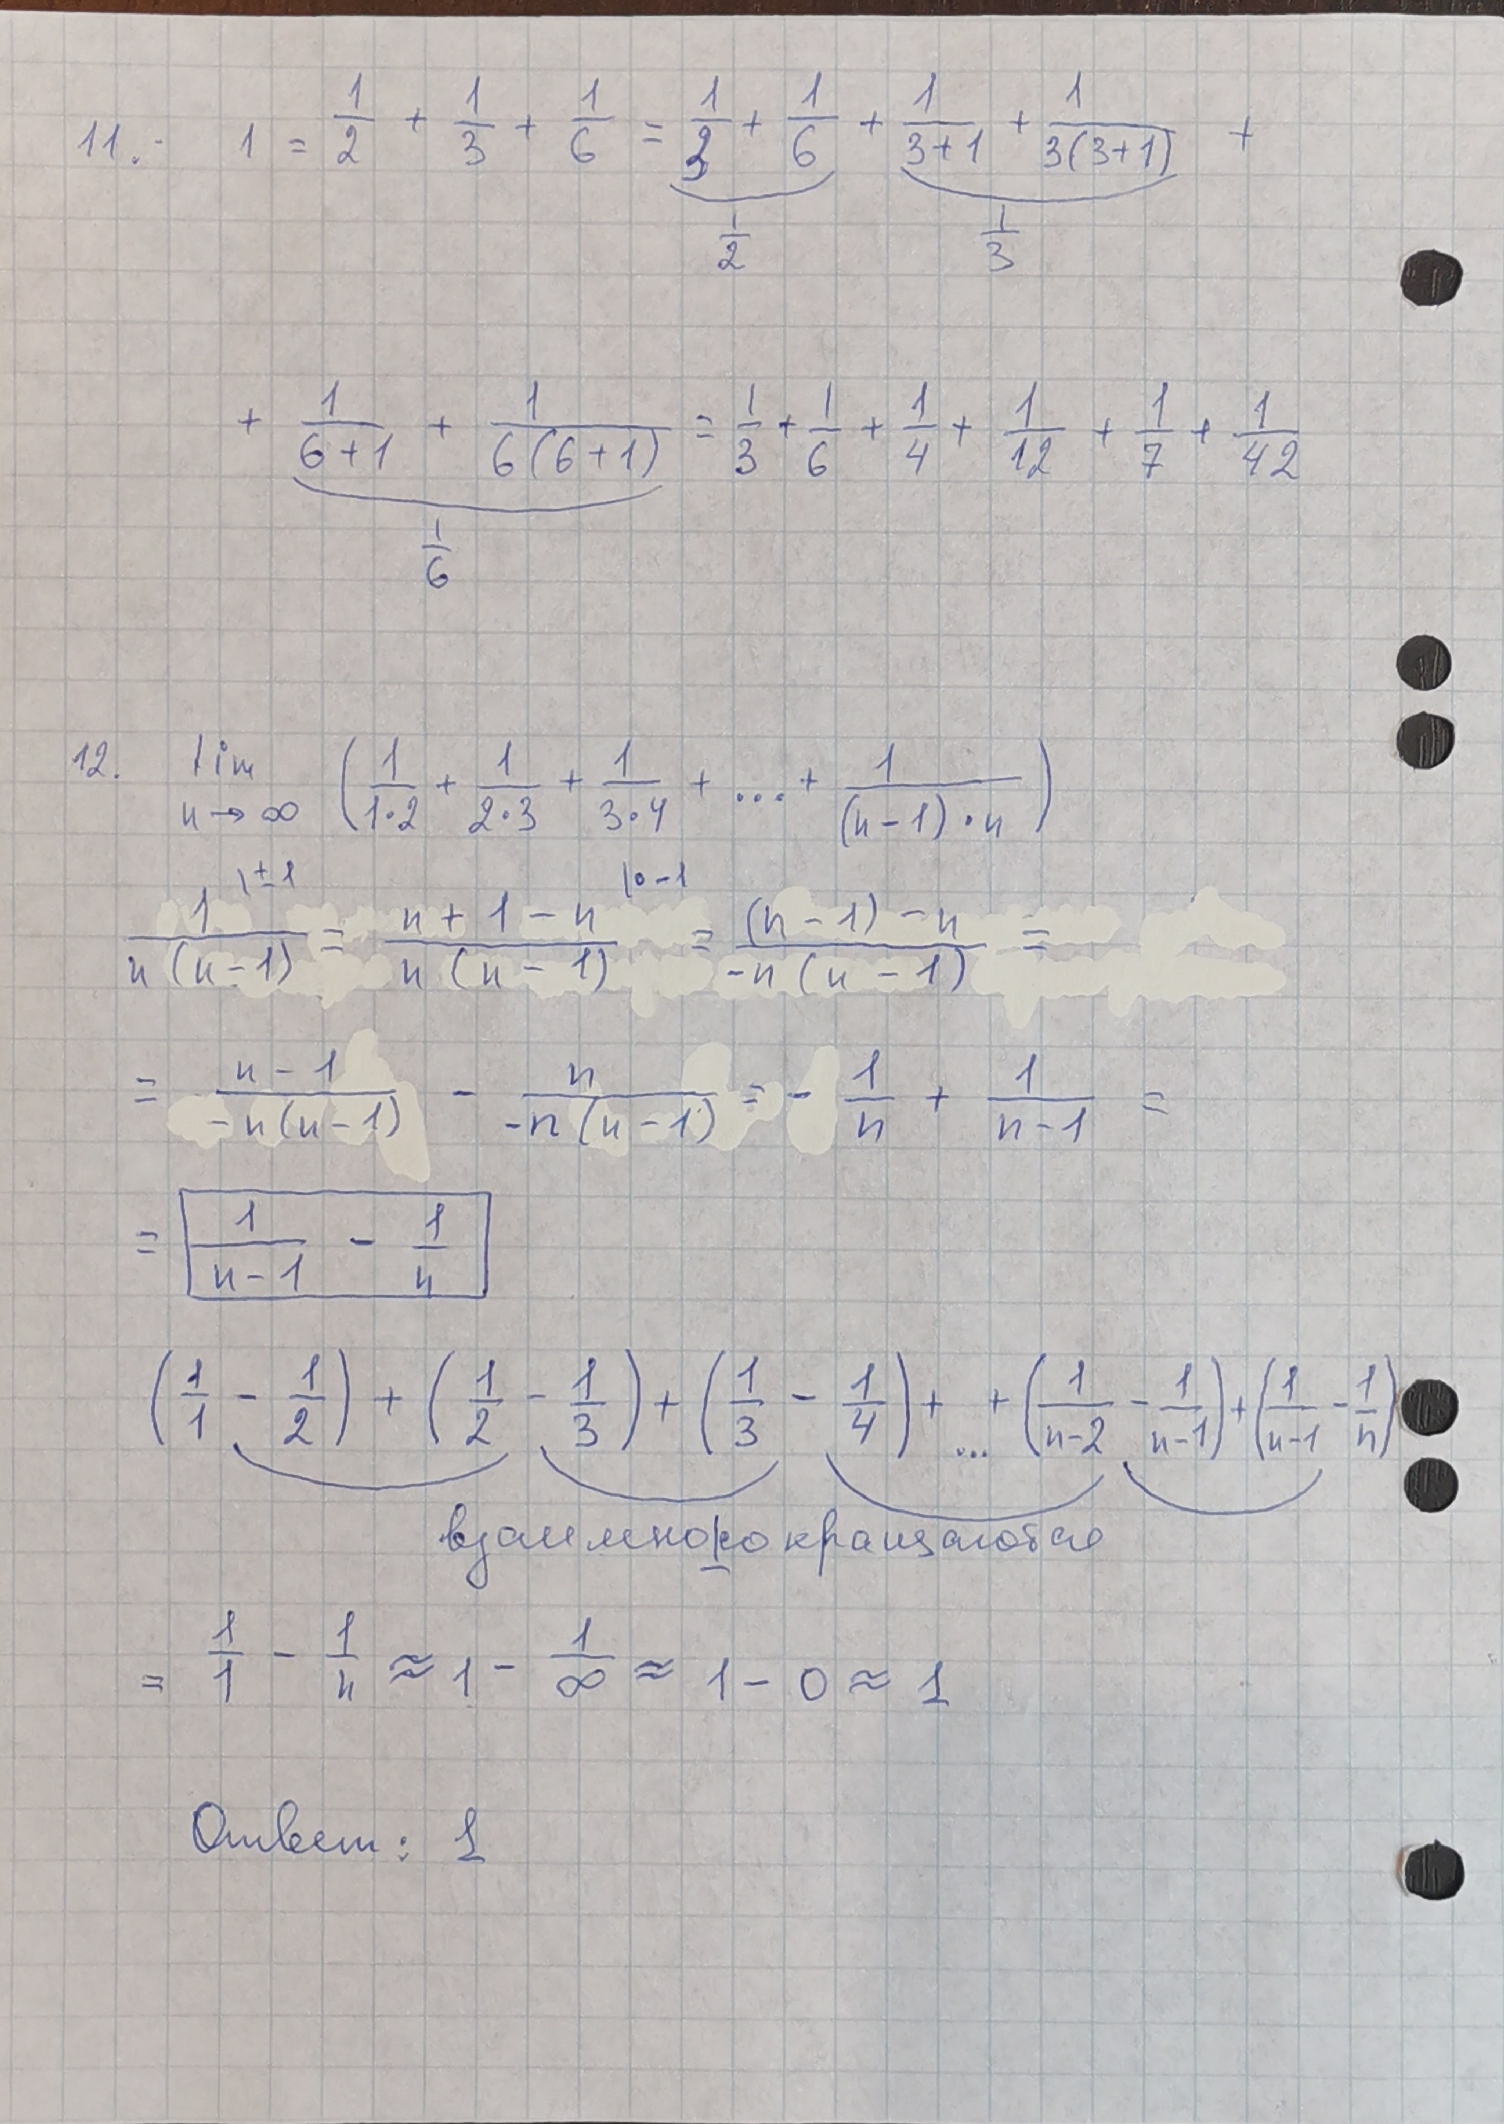 11. 1 = 1/2 + 1/3 + 1/6 = 1/3 + 1/6 + 1/(3+1) + 1/(3(3+1)) +
1/2 1/3
+ 1/(6+1) + 1/(6(6+1)) = 1/3 + 1/6 + 1/4 + 1/12 + 1/7 + 1/42
1/6
12. lim n→∞ (1/(1·2) + 1/(2·3) + 1/(3·4) + ... + 1/((n-1)·n))
1/(n(n-1)) |±1 = (n+1-n)/(n(n-1)) |·-1 = ((n-1)-n)/(-n(n-1)) =
= (n-1)/(-n(n-1)) - n/(-n(n-1)) = - 1/n + 1/(n-1) =
= 1/(n-1) - 1/n
(1/1 - 1/2) + (1/2 - 1/3) + (1/3 - 1/4) + ... + (1/(n-2) - 1/(n-1)) + (1/(n-1) - 1/n)
взаимно сокращаются
= 1/1 - 1/n ≈ 1 - 1/∞ ≈ 1 - 0 ≈ 1
Ответ: 1